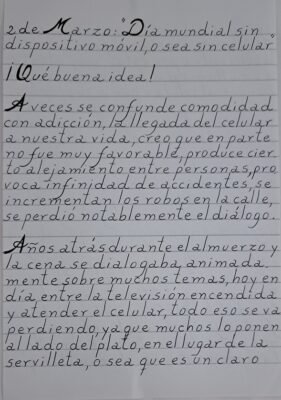 2 de Marzo: "Día mundial sin
dispositivo móvil, o sea sin celular"
¡Qué buena idea!
A veces se confunde comodidad
con adicción, la llegada del celular
a nuestra vida, creo que en parte
no fue muy favorable, produce cier
to alejamiento entre personas, pro
voca infinidad de accidentes, se
incrementan los robos en la calle,
se perdió notablemente el diálogo.
Años atrás durante el almuerzo y
la cena se dialogaba, animada
mente sobre muchos temas, hoy en
día, entre la televisión encendida
y atender el celular, todo eso se va
perdiendo, ya que muchos lo ponen
al lado del plato, en el lugar de la
servilleta, o sea que es un claro